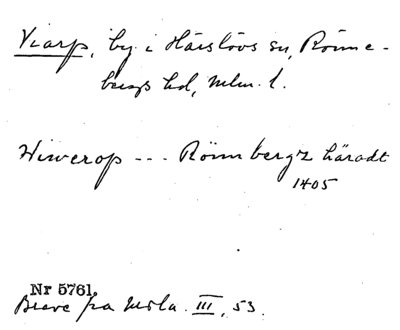 Viarp, by i Härslövs sn, Rönne-
bergs hd, Mlm. l.
Wiwerop --- Rönnbergz häradt
1405
Nr 5761.
Breve fra Mola. III, 53.